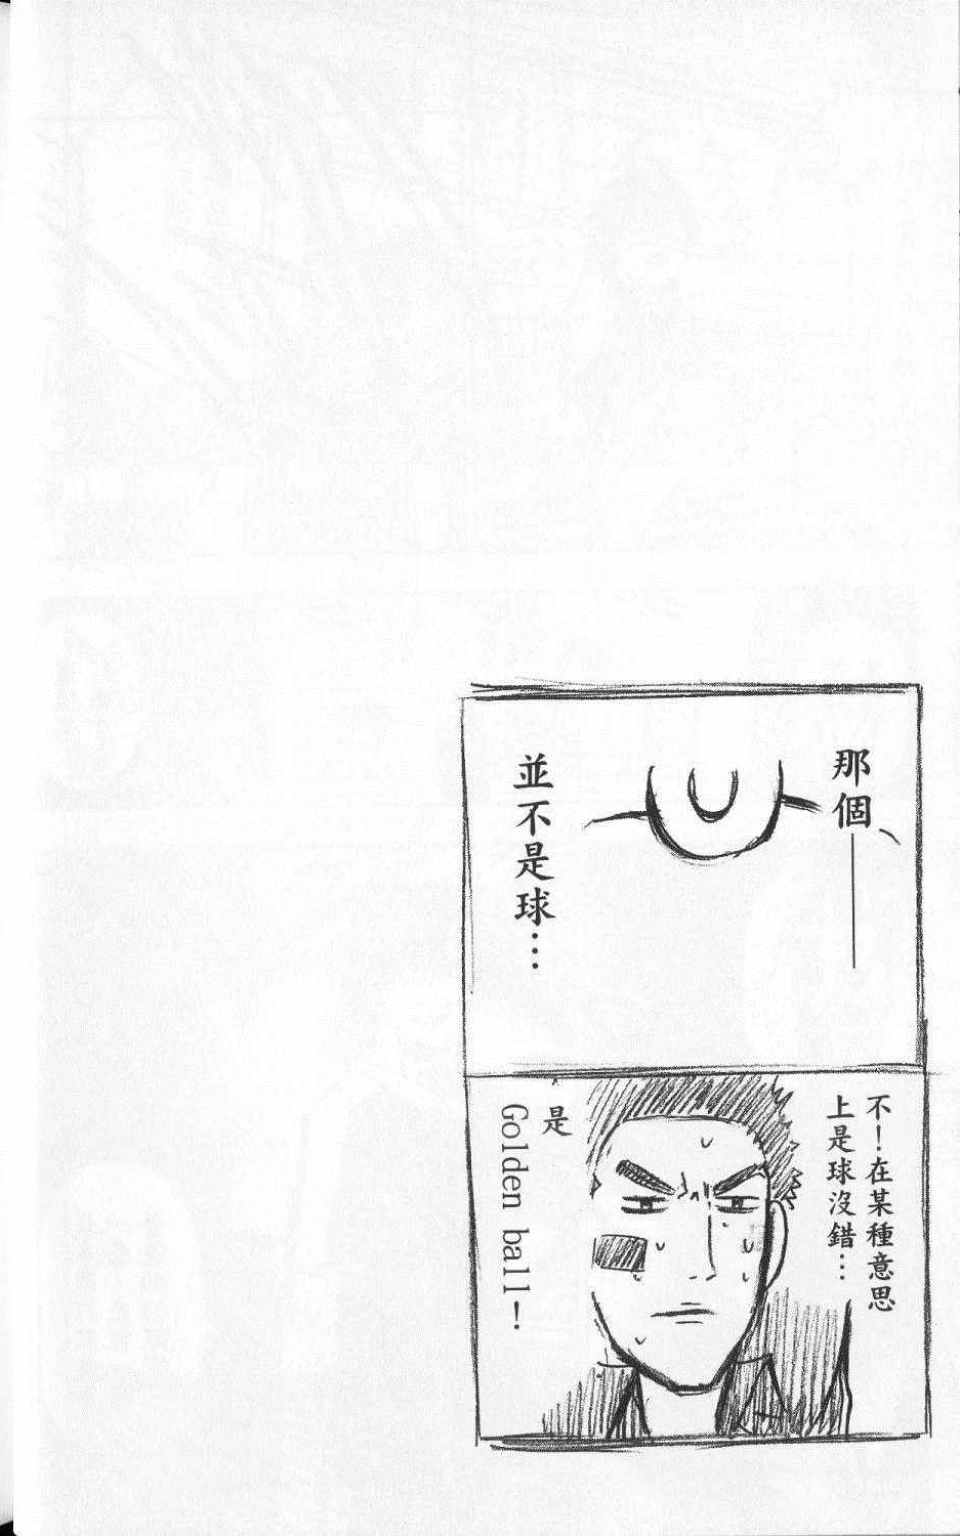 那個——
並不是球…
不！在某種意思
上是球沒錯…
是
Golden ball！